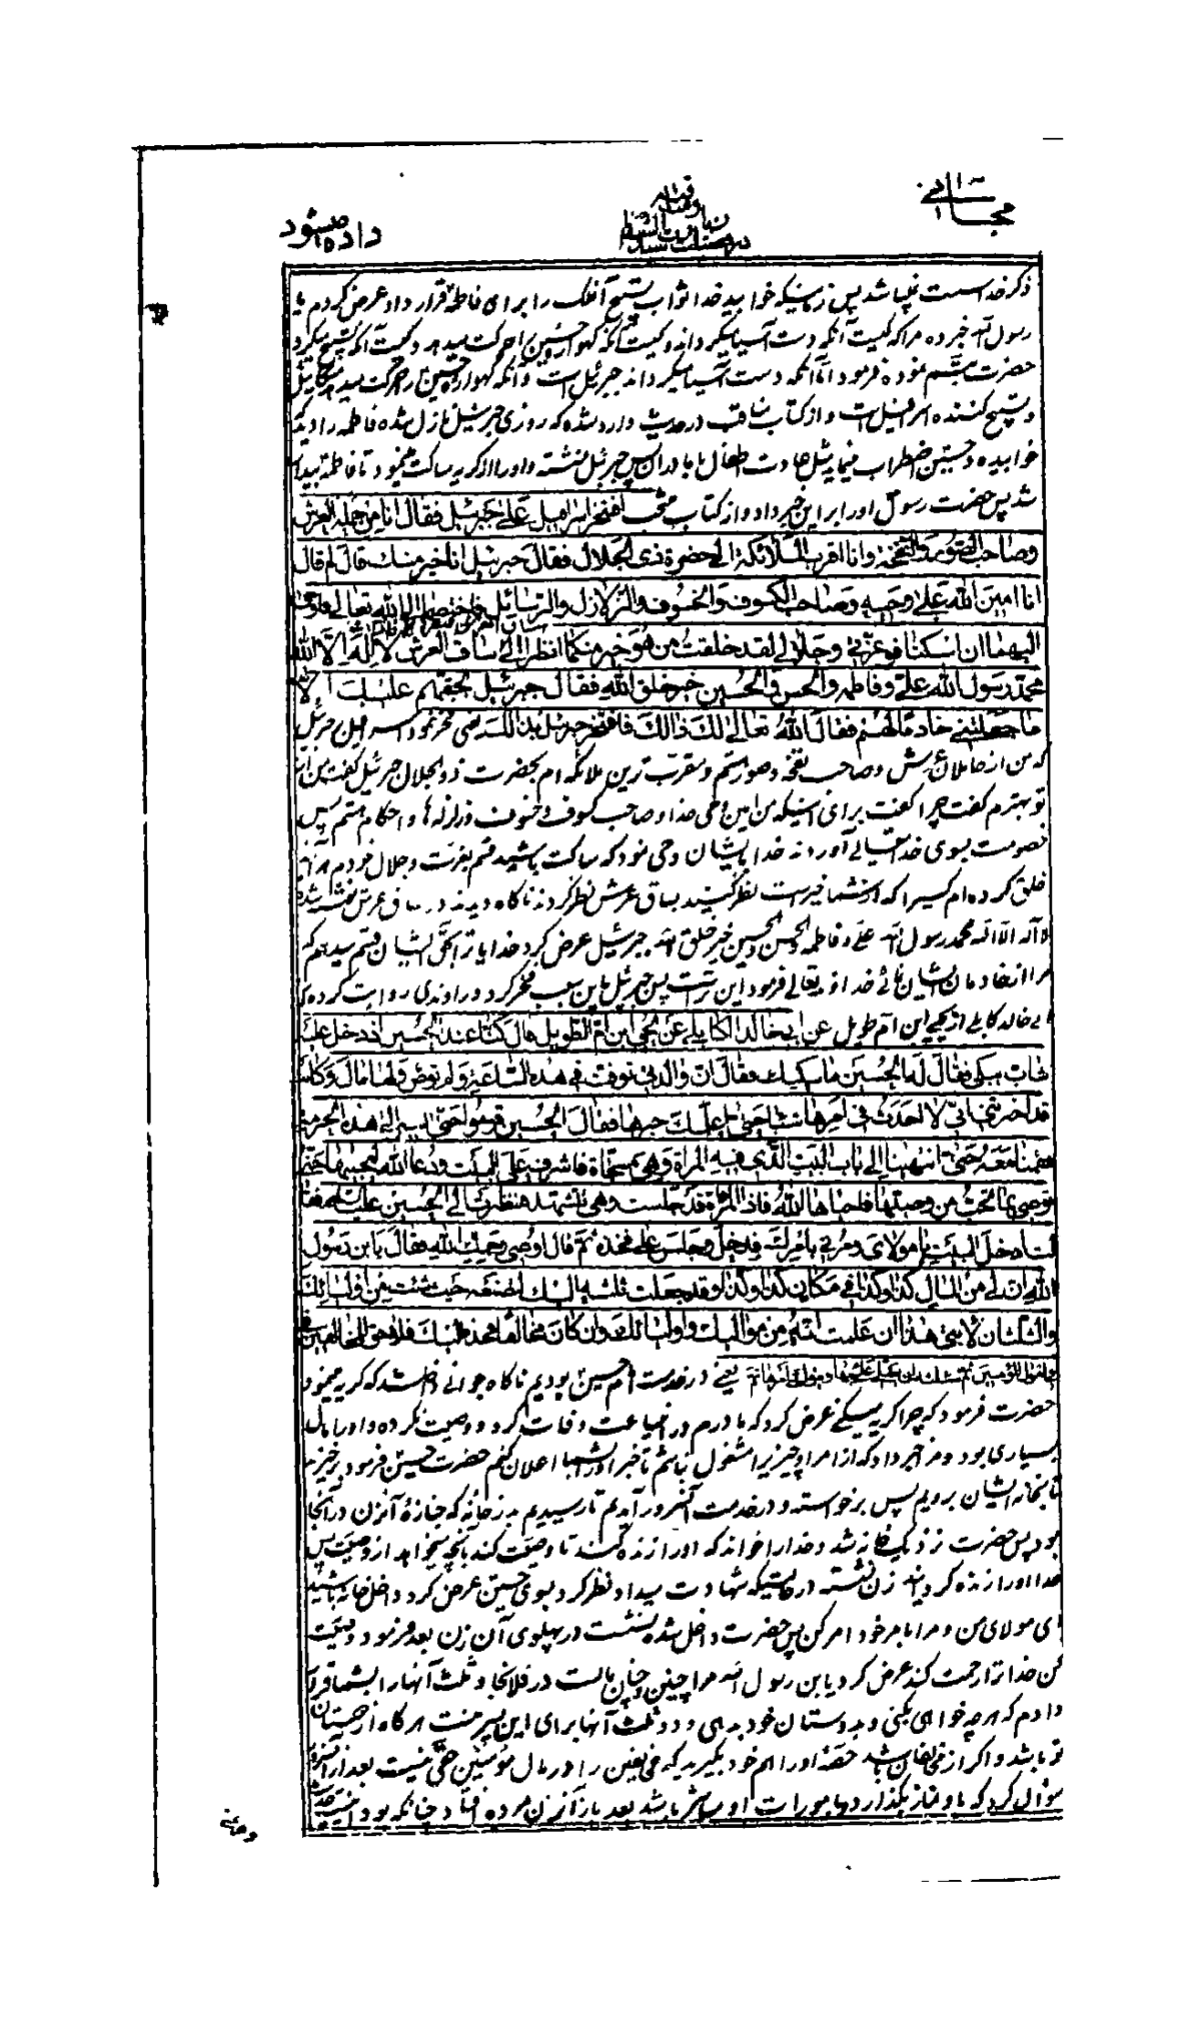 داده میشود
ذکر خداست نمیباشد پس زمانیکه خوابید خدا ثواب تسبیح آنملک را برای فاطمه قرار داد عرض کردم یا
رسول الله خبر ده مرا که کیست آنکه دست آسیا میگرداند و کیست آنکه گهواره حسین را حرکت میدهد و کیست آنکه تسبیح میکرد
حضرت تبسّم نموده فرمود امّا آنکه دست آسیا میگرداند جبرئیل است و آنکه گهواره حسین را حرکت میدهد میکائیل
و تسبیح کننده اسرافیل است و از کتاب مناقب در حدیث وارد شده که روزی جبرئیل نازل شده فاطمه را دید که
خوابیده و حسین اضطراب مینماید مثل عادت اطفال با مادران پس جبرئیل نشسته و او را از گریه ساکت مینمود تا فاطمه بیدار
شد پس حضرت رسول او را بر این خبر داد و از کتاب افتخر اسرافیل علی جبرئیل فقال انا من حملة العرش
وصاحب الصور والنفخة وانا اقرب الملائکة الی حضرة ذی الجلال فقال جبرئیل انا خیر منک قال لم قال
انا امین الله علی وحیه وصاحب الکسوف والخسوف والزلازل والرسائل فاختصما الی الله تعالی فاوحی
الیهما ان اسکتا فوعزتی وجلالی لقد خلقت من هو خیر منکما انظرا الی ساق العرش لا اله الا الله
محمد رسول الله علی وفاطمه والحسن والحسین خیر خلق الله فقال جبرئیل بحقهم علیک الا
ما جعلتنی خادما لهم فقال الله تعالی لک ذالک فافتخر جبرئیل بذالک یعنی فخر نمود اسرافیل بر جبرئیل
که من از حاملان عرش و صاحب نفخه و صور هستم و مقرب ترین ملائکه ام بحضرت ذوالجلال جبرئیل گفت من از
تو بهترم گفت چرا گفت برای اینکه من امین وحی خدا و صاحب کسوف و خسوف و زلزله ها و احکام هستم پس
خصومت بسوی خدا تعالی آوردند خدا بایشان وحی نمود که ساکت باشید قسم بعزت و جلال خودم هر آینه
خلق کرده ام کسیرا که از شما خیر است نظر کنید بساق عرش نظر کردند ناگاه دیدند در ساق عرش نقش شده
لا اله الا الله محمد رسول الله علی و فاطمه والحسن والحسین خیر خلق الله جبرئیل عرض کرد خدایا ترا بحق ایشان قسم میدهم که
مرا از خادمان ایشان نمائی خدا تعالی فرمود این تراست پس جبرئیل باین سبب فخر کرد و راوندی روایت کرده که
ابی خالد کابلی از یحیی ابن ام طویل عن ابی خالد الکابلی عن یحیی ابن ام الطویل قال کنا عند الحسین اذ دخل علیه
شاب یبکی فقال له الحسین ما یبکیک فقال ان والدتی توفت فی هذه الساعة ولم توص ولها مال وکانت
قد اخبرتنی انی لا احدث فی امرها شیئا حتی اعلمک خبرها فقال الحسین قوموا حتی نسیر الی هذه الحرة
فقمنا معه حتی انتهینا الی باب البیت الذی فیه المرأة وهی مسجاة فاشرف علی البیت ودعا الله لیحییها حتی
توصی بما تحب من وصیتها فاحیاها الله فاذا المرأة قد جلست وهی تتشهد فنظرت الی الحسین علیه السلام فقالت
له ادخل البیت یا مولای ومرنی بامرک فدخل وجلس علی مخدة ثم قال اوصی یرحمک الله فقال یا بن رسول
الله ان لی من المال کذا وکذا فی مکان کذا وکذا وقد جعلت ثلثه الیک لتضعه حیث شئت من اولیائک
والثلثان لابنی هذا ان علمت انه من موالیک واولیائک وان کان مخالفا فخذه الیک فلا حق للمخالفین فی
اموال المؤمنین ثم سئلته ان یصلی علیها وان یتولی امرها ثم یعنی در خدمت امام حسین بودیم ناگاه جوانی داخل شد که گریه مینمود
حضرت فرمود که چرا گریه میکنی عرض کرد که مادرم در این ساعت وفات کرد و وصیت نکرده و او را مال
بسیاری بود و مرا خبر داد که از امر او چیزیرا مشغول نباشم تا خبر او را بشما اعلان کنم حضرت حسین فرمود برخیزید
تا بخانه ایشان برویم پس برخواسته و در خدمت آنسرور آمدیم تا رسیدیم بدرخانه که جنازهٔ آنزن در آنجا
بود پس حضرت نزدیک خانه شد و خدا را خواند که او را زنده کند تا وصیت کند بآنچه میخواهد از وصیت پس
خدا او را زنده گردانید زن نشسته در حالتیکه شهادت میداد و نظر کرد بسوی حسین عرض کرد داخل خانه باشید
ای مولای من و مرا بامر خود امر کن پس حضرت داخل شده بنشست در پهلوی آن زن بعد فرمود وصیت
کن خدا ترا رحمت کند عرض کرد یا بن رسول الله مرا چنین و چنان مالست در فلانجا و ثلث آنها را بشما قرار
دادم که هر چه خواهی بکنی و بدوستان خود بدهی و دو ثلث آنها برای این پسر منست هر گاه از محبان
تو باشد و اگر از مخالفان باشد حصّهٔ او را هم خود بگیرید که مخالفین را در مال مؤمنین حقی نیست بعد از آنسرور
سؤال کرد که باو نماز بگذارد و بامورات او مباشر باشد بعد باز آنزن مرده افتاد چنانکه بود